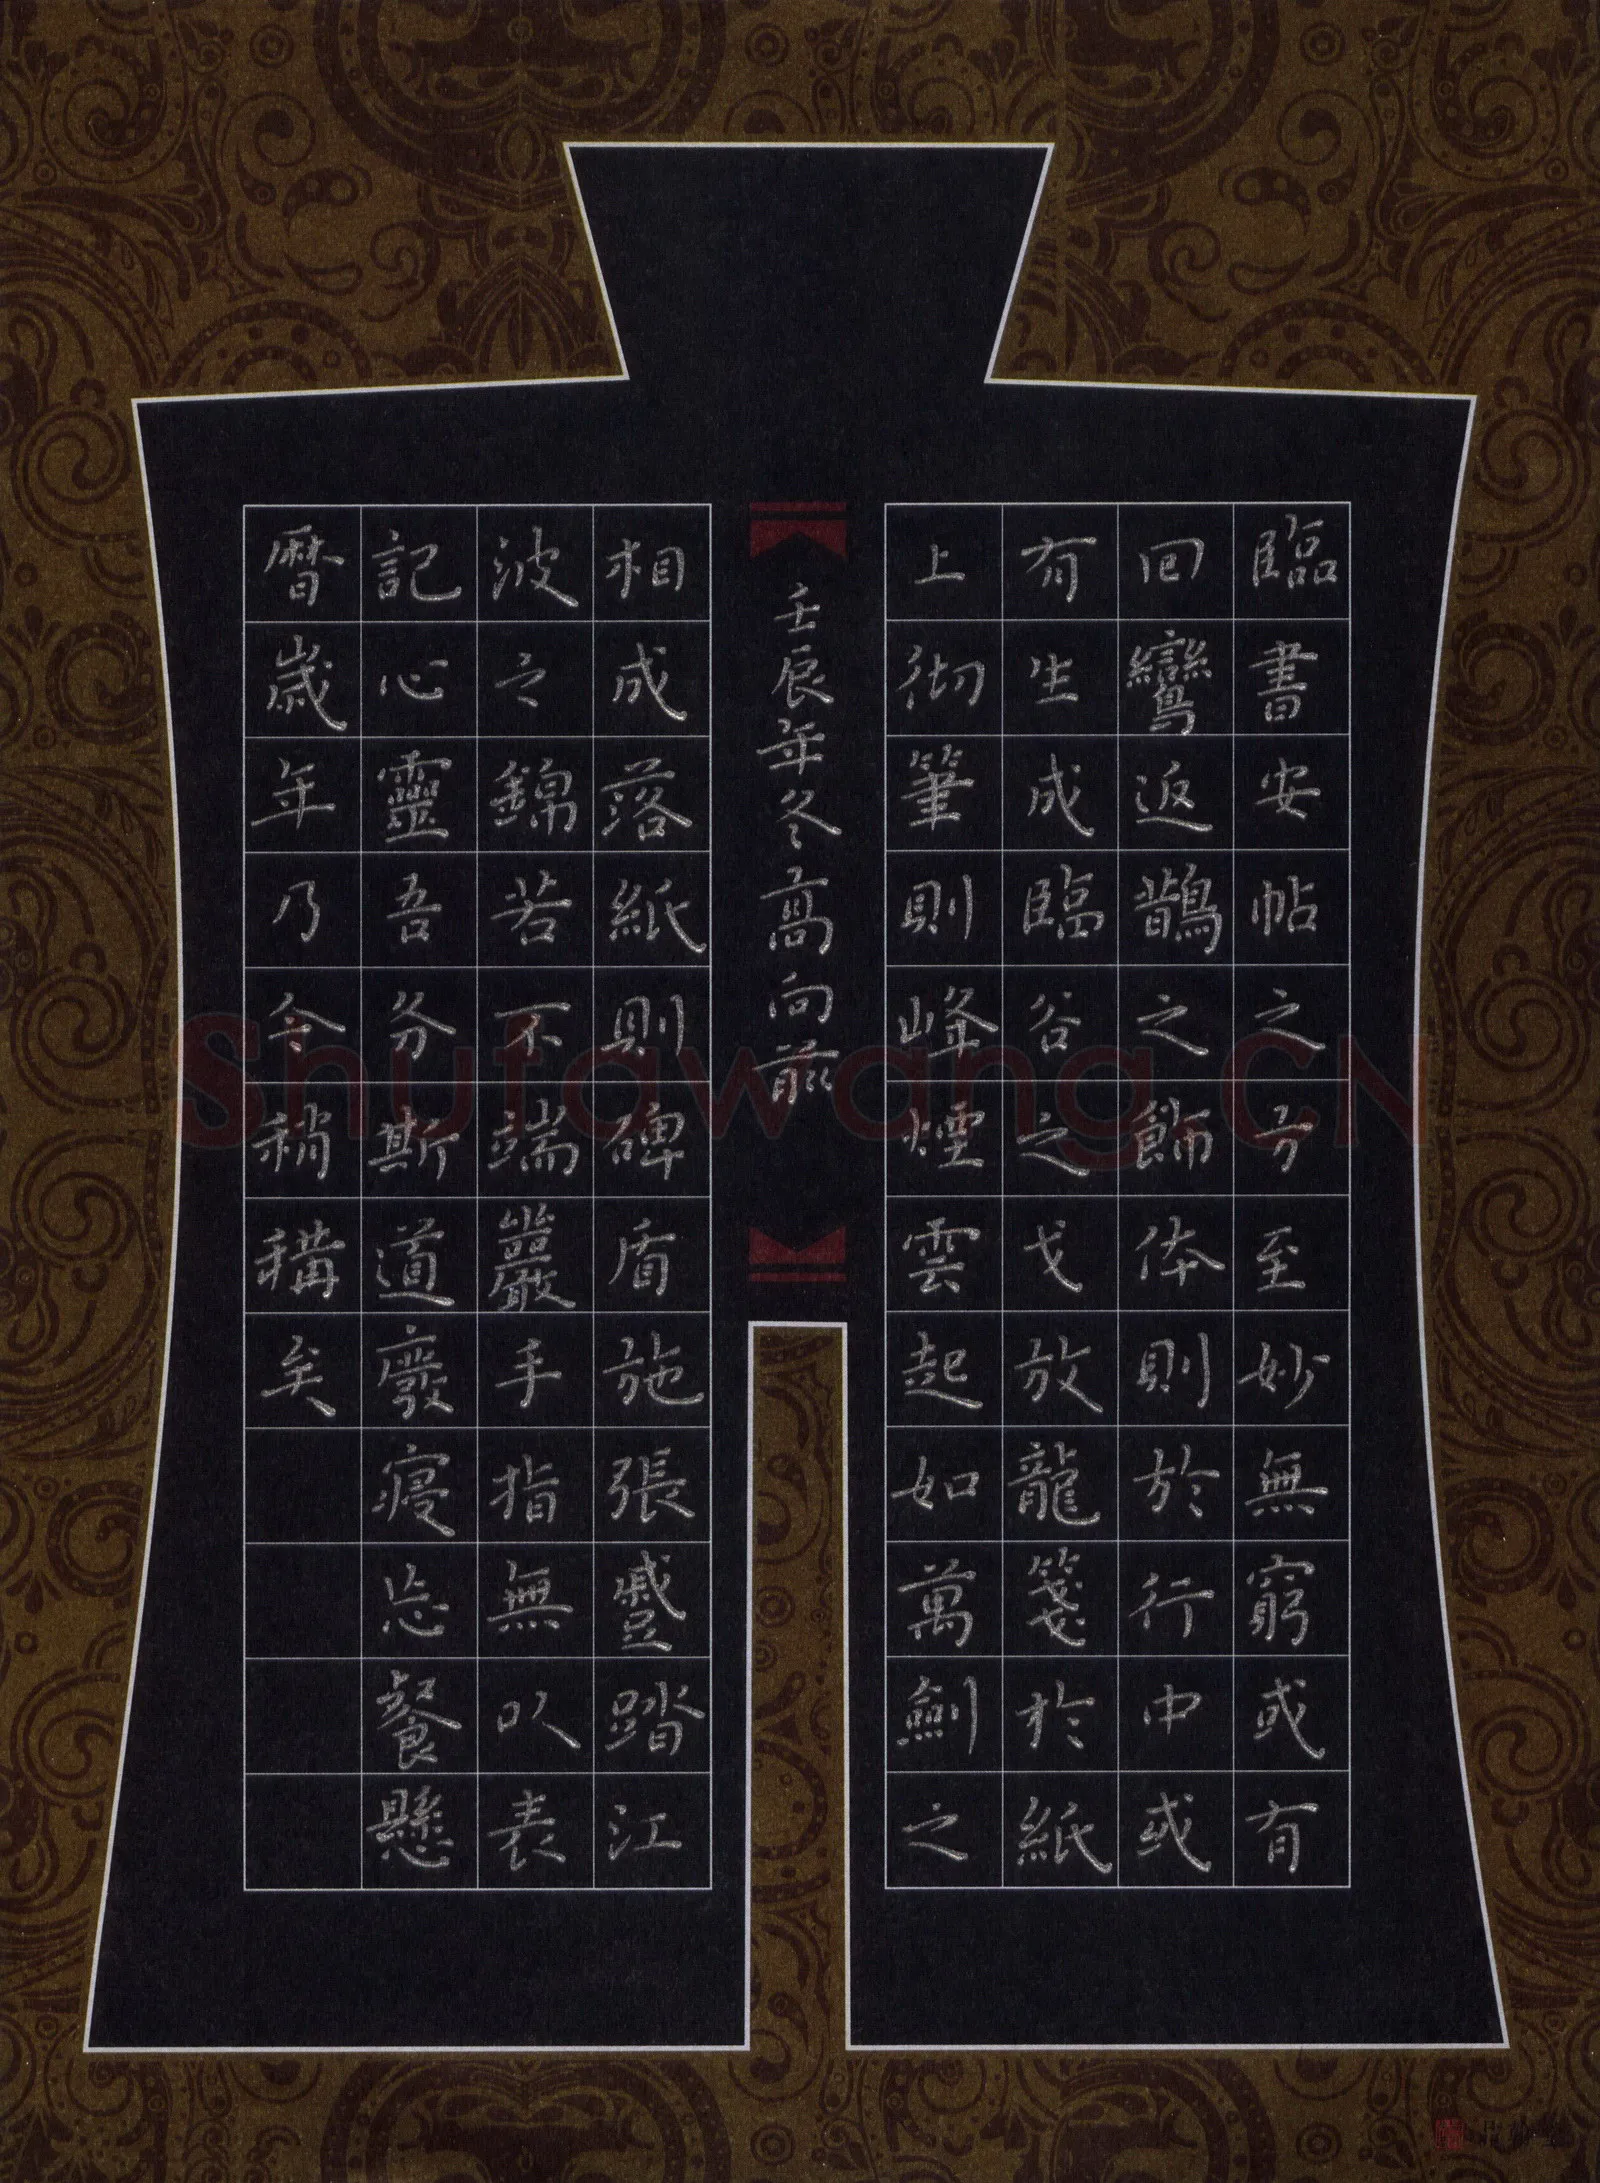 臨書安帖之方至妙無窮或有
回鸞返鵲之飾体則於行中或
有生成臨谷之戈放龍箋於紙
上彻筆則峰煙雲起如萬劍之
壬辰年冬高向前
相成落紙則碑盾施張蹙踏江
波之錦若不端嚴手指無以表
記心靈吾务斯道廢寢忘餐懸
曆歲年乃今稍稱矣
Shufawang.CN